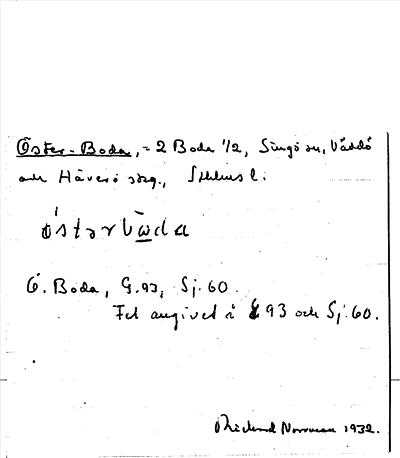 Öster-Boda, = 2 Boda 1/2, Singö sn, Väddö
och Häverö skg., Sthlms l.
östərbωda
Ö. Boda, G.93, Sj. 60.
Fel angivet å G 93 och Sj. 60.
Rickard Norrman 1932.